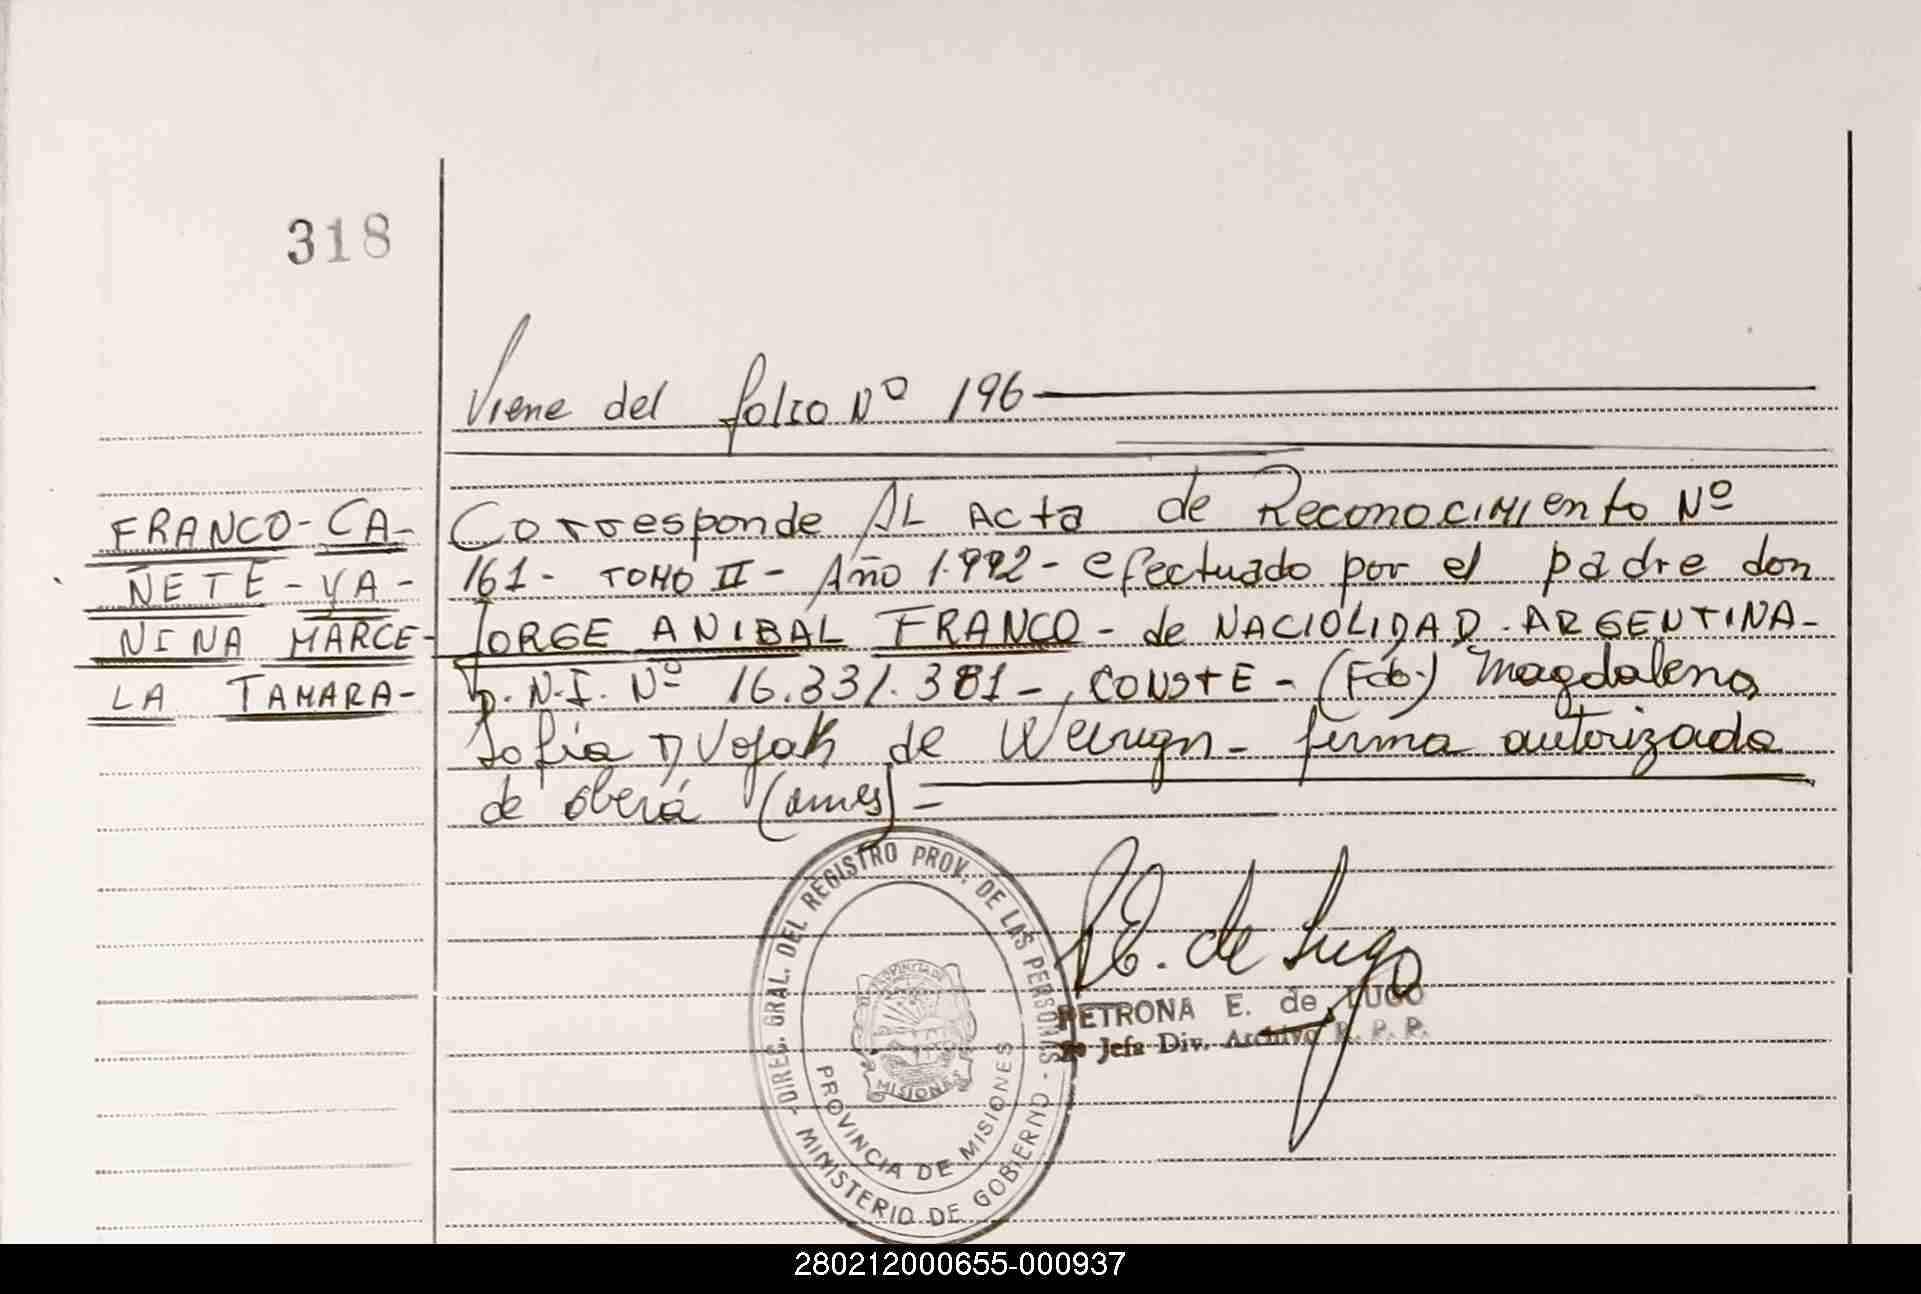 318
Viene del folio Nº 196
FRANCO-CA-
ÑETE-YA-
NINA MARCE-
LA TAMARA-
Corresponde AL Acta de Reconocimiento Nº
161- TOMO II- Año 1.992- efectuado por el padre don
JORGE ANIBAL FRANCO- de NACIOLIDAD ARGENTINA-
D.N.I. Nº 16.331.381-, CONSTE- (Fdo.) Magdalena
Sofia de firma autorizada
de oberá
DIREC. GRAL. DEL REGISTRO PROV. DE LAS PERSONAS - MINISTERIO DE GOBIERNO -
PROVINCIA DE MISIONES
PROVINCIA DE
MISIONES
P.E. de Lugo
PETRONA E. de LUGO
Jefa Div. Archivo R. P. P.
280212000655-000937